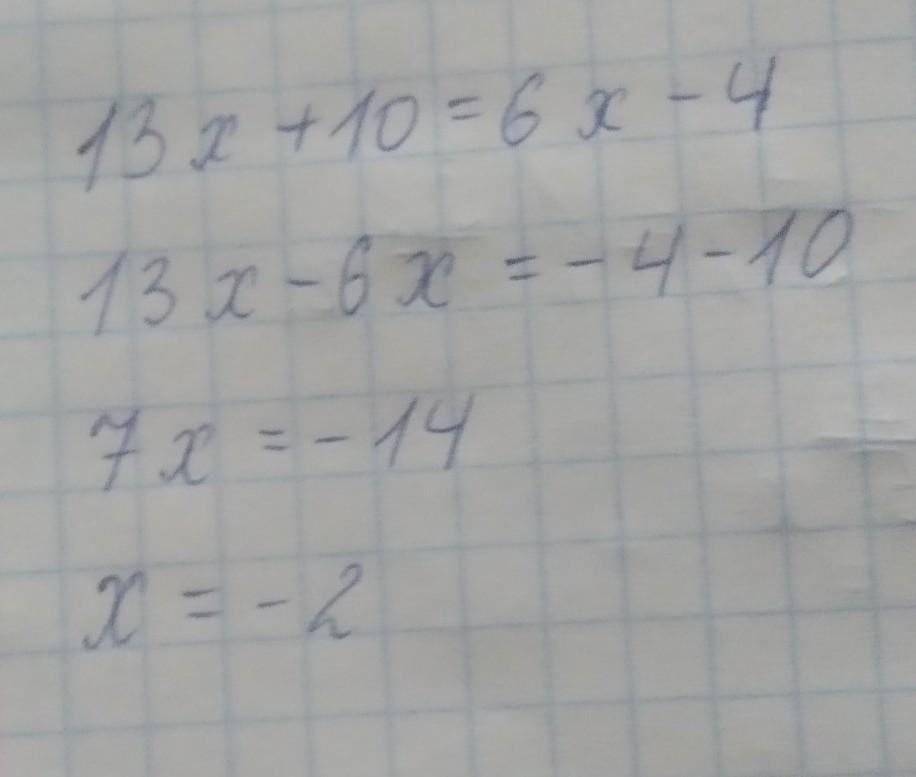 13x+10=6x-4
13x-6x=-4-10
7x=-14
x=-2